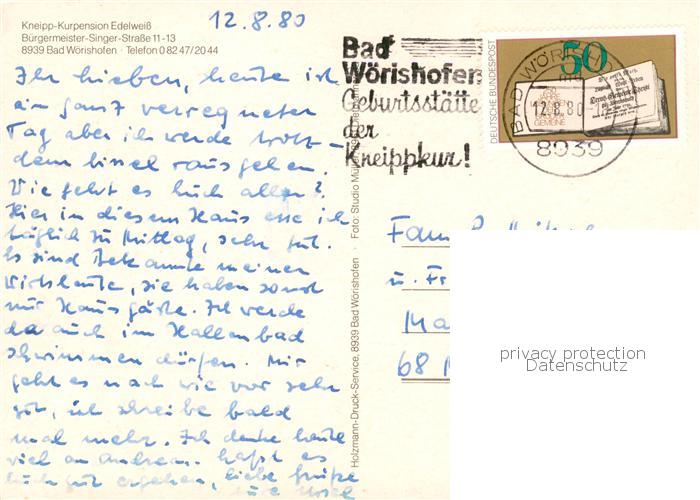 Kneipp-Kurpension Edelweiß
Bürgermeister-Singer-Straße 11-13
8939 Bad Wörishofen · Telefon 0 82 47/20 44
12.8.80
Ihr Lieben, heute ist
ein ganz verregneter
Tag aber ich werde trotz-
dem bissel rausgehen.
Wie geht es Euch allen?
Hier in diesem Haus esse ich
täglich zu Mittag, sehr gut.
Es sind Bekannte meiner
Wirtsleute, sie haben sonst
nur Hausgäste. Ich werde
da auch im Hallenbad
schwimmen dürfen. Mir
geht es nach wie vor sehr
gut, ich schreibe bald
mal mehr. Ich denke heute
viel an Andrea. Laßt es
Euch gut ergehen, liebe Grüße
Eure Ursel
Holzmann-Druck-Service, 8939 Bad Wörishofen · Foto: Studio
Bad
Wörishofen
Geburtsstätte
der
Kneippkur!
BAD WÖRISH
12.8.80
8939
DEUTSCHE BUNDESPOST
50
Fam.
u. Fr
Ma
68 M
privacy protection
Datenschutz